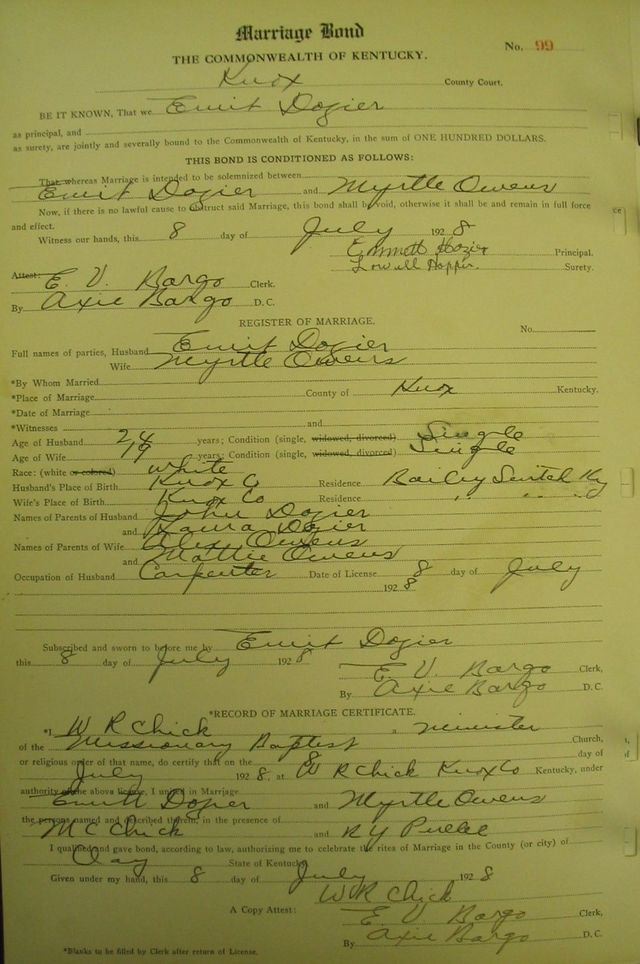 Marriage Bond
No. 99
THE COMMONWEALTH OF KENTUCKY.
Knox County Court.
BE IT KNOWN, That we Emit Dozier
as principal, and
as surety, are jointly and severally bound to the Commonwealth of Kentucky, in the sum of ONE HUNDRED DOLLARS.
THIS BOND IS CONDITIONED AS FOLLOWS:
That, whereas Marriage is intended to be solemnized between
Emit Dozier and Myrtle Owens
Now, if there is no lawful cause to obstruct said Marriage, this bond shall be void, otherwise it shall be and remain in full force
and effect.
Witness our hands, this 8 day of July 1928
Emmett Dozier Principal.
Lowell Hopper. Surety.
Attest: E. V. Bargo Clerk.
By Axie Bargo D. C.
REGISTER OF MARRIAGE.
No.
Full names of parties, Husband Emit Dozier
Wife Myrtle Owens
*By Whom Married
*Place of Marriage County of Knox Kentucky.
*Date of Marriage
*Witnesses and
Age of Husband 24 years; Condition (single, widowed, divorced) Single
Age of Wife 19 years; Condition (single, widowed, divorced) Single
Race: (white or colored) white
Husband's Place of Birth Knox Co Residence Bailey Switch Ky
Wife's Place of Birth Knox Co Residence " " "
Names of Parents of Husband John Dozier
and Laura Dozier
Names of Parents of Wife Alex Owens
and Mattie Owens
Occupation of Husband Carpenter Date of License 8 day of July
1928
Subscribed and sworn to before me by Emit Dozier
this 8 day of July 1928
E. V. Bargo Clerk,
By Axie Bargo D. C.
*RECORD OF MARRIAGE CERTIFICATE.
*I W R Chick a minister
of the Missionary Baptist Church,
or religious order of that name, do certify that on the 8 day of
July 1928, at W R Chick Knox Co Kentucky, under
authority of the above license, I united in Marriage
Emitt Dozier and Myrtle Owens
the persons named and described therein, in the presence of
M C Chick and R Y
I qualified and gave bond, according to law, authorizing me to celebrate the rites of Marriage in the County (or city) of
Clay State of Kentucky
Given under my hand, this 8 day of July, 1928
W R Chick
A Copy Attest: E. V. Bargo Clerk,
By Axie Bargo D. C.
*Blanks to be filled by Clerk after return of License.